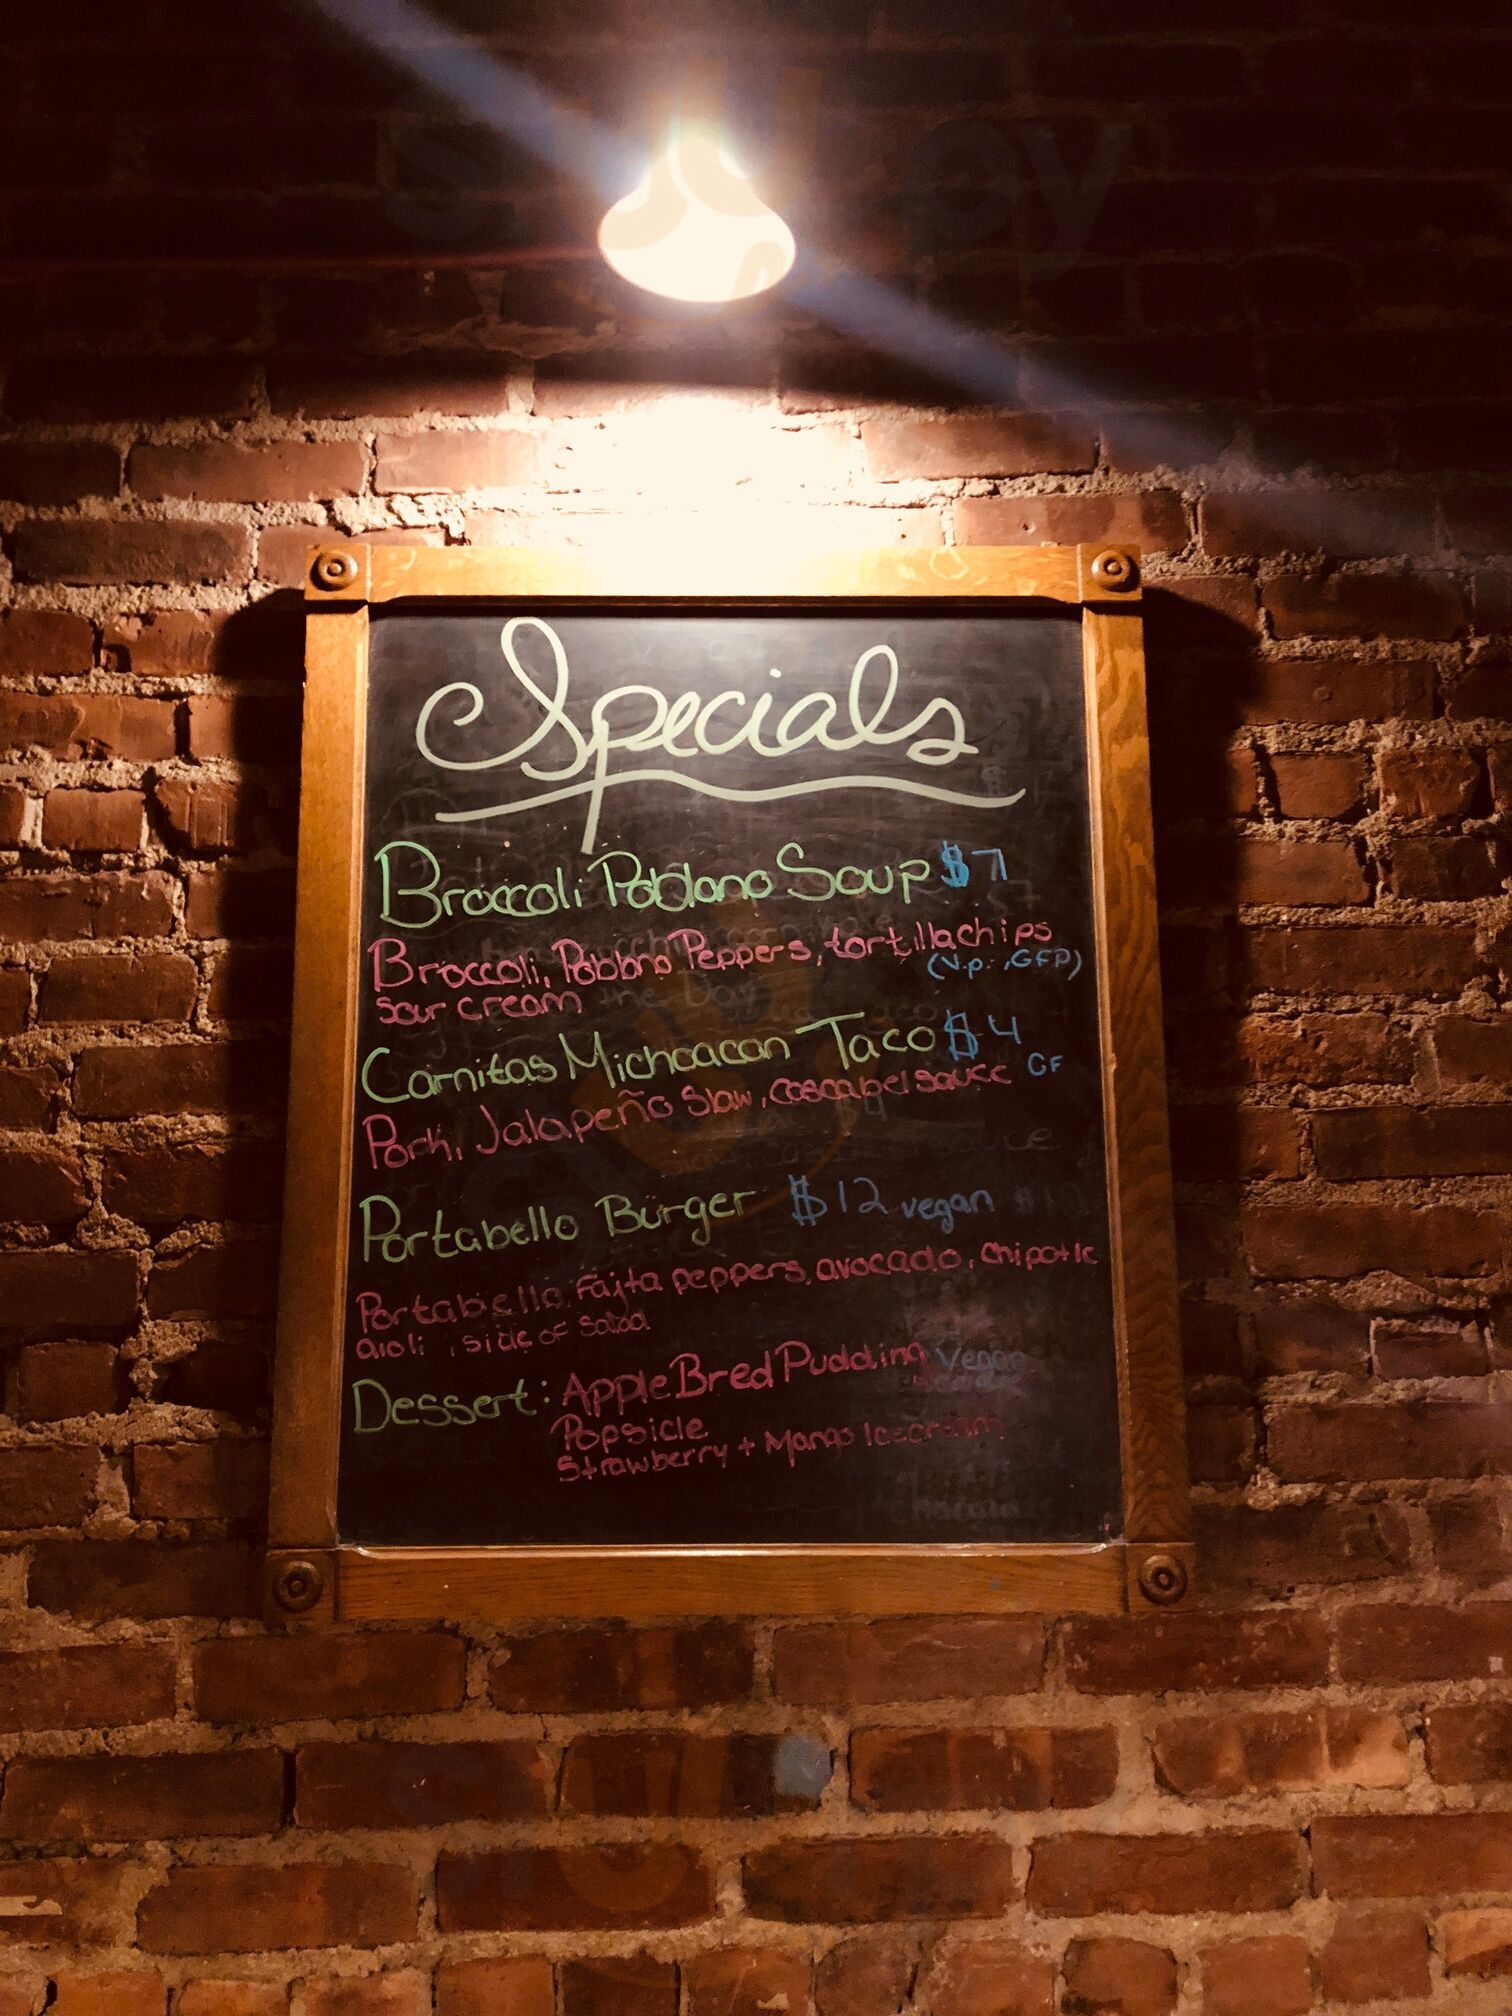 Specials
Broccoli Poblano Soup $7
Broccoli, Poblano Peppers, tortilla chips
(V.p., GFP)
Sour cream
Carnitas Michoacan Taco $4
GF
Pork, Jalapeño Slaw, cascabel sauce
Portabello Burger $12 vegan
Portabello, Fajita peppers, avocado, chipotle
aioli, side of salad
Dessert: Apple Bred Pudding Vegan
Popsicle
Strawberry + Mango Icecream